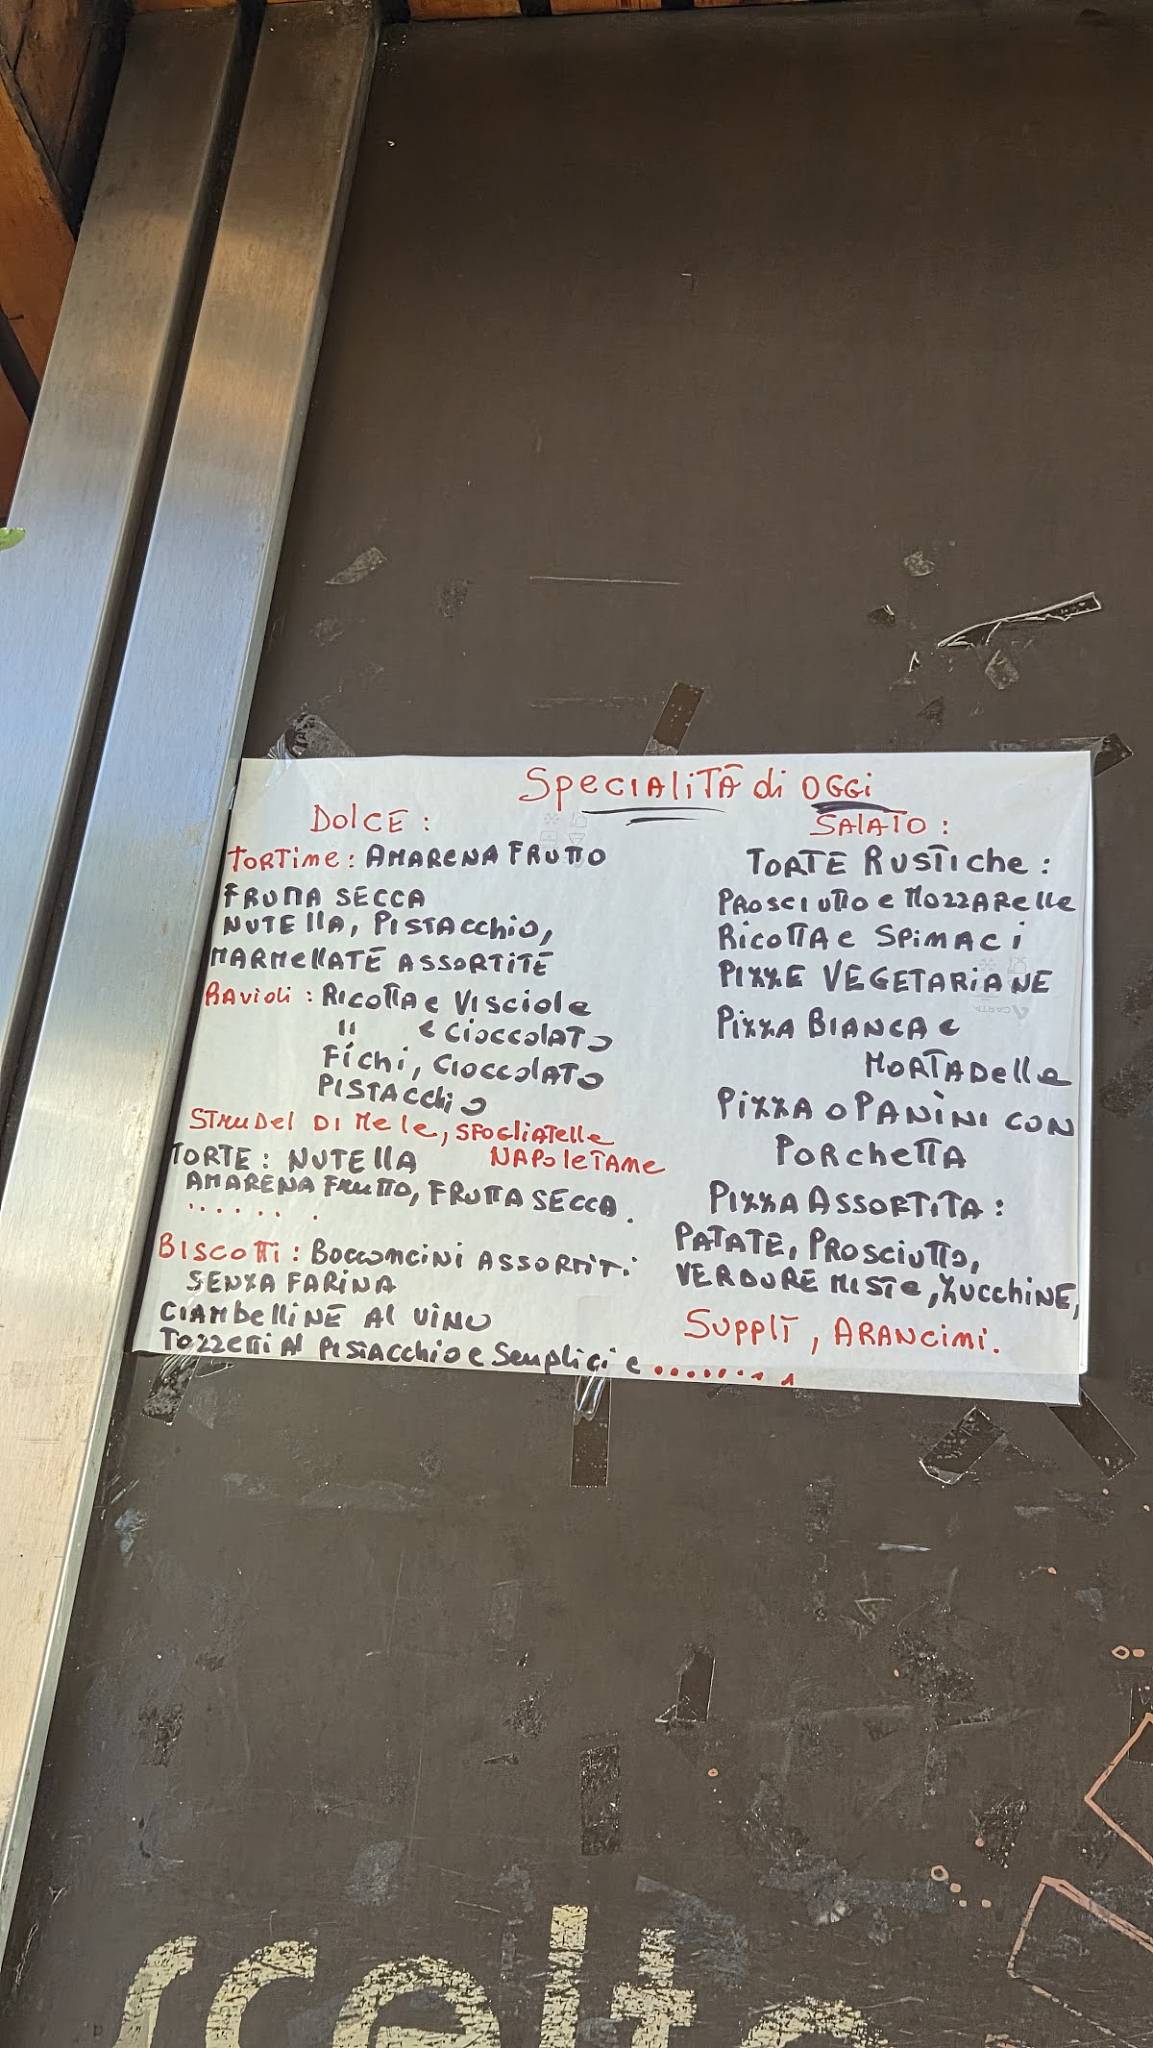 SpecialiTà di OGGi
DolCE :
TORTine : AMARENA FRUTTO
FRUTTA SECCA
NUTEllA, PISTAcchio,
MARMEllATE ASSORTITE
RAVioli : RICOTTA e VISciole
" e CioccolATO
FiChi, CIOCCOLATO
PISTACChiO
STRUDEl DI MELE, SFOGLIATELLE
NAPOLETANE
TORTE : NUTEllA
AMARENA FRUTTO, FRUTTA SECCA.
. . . . . . .
BISCOTTi : BOCCONCiNi ASSORTiTi
SENZA FARiNA
CIAMbElliNE Al ViNO
TOZZETTi Al PISTACChiO e SEMPLICi e ........
SAlATO :
TORTE RUSTiChe :
PROSCIUTTO e MOZZAREllE
RiCOTTA e SPiNACi
PIZZE VEGETARiANE
PiZZA BIANCA e
MORTADEllA
PiZZA O PANiNi CON
PORChETTA
PiZZA ASSORTiTA :
PATATE, PROSCiUTTO,
VERDURE MiSTE, ZUCChiNE,
SUPPlì, ARANCiNi.
scelto